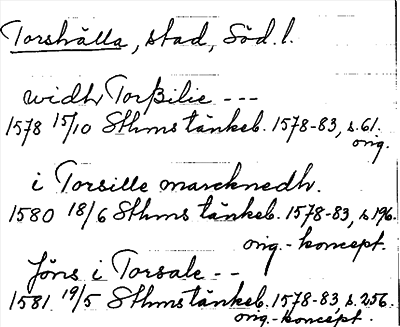 Torshälla, stad, Söd. l.
widh Torßilie ---
1578 15/10 Sthms tänkeb. 1578-83, s. 61.
orig.
i Torsille marcknedh.
1580 18/6 Sthms tänkeb. 1578-83, s. 196.
orig.-koncept.
Jöns i Torsale --
1581 19/5 Sthms tänkeb. 1578-83 s. 256.
orig.-koncept.